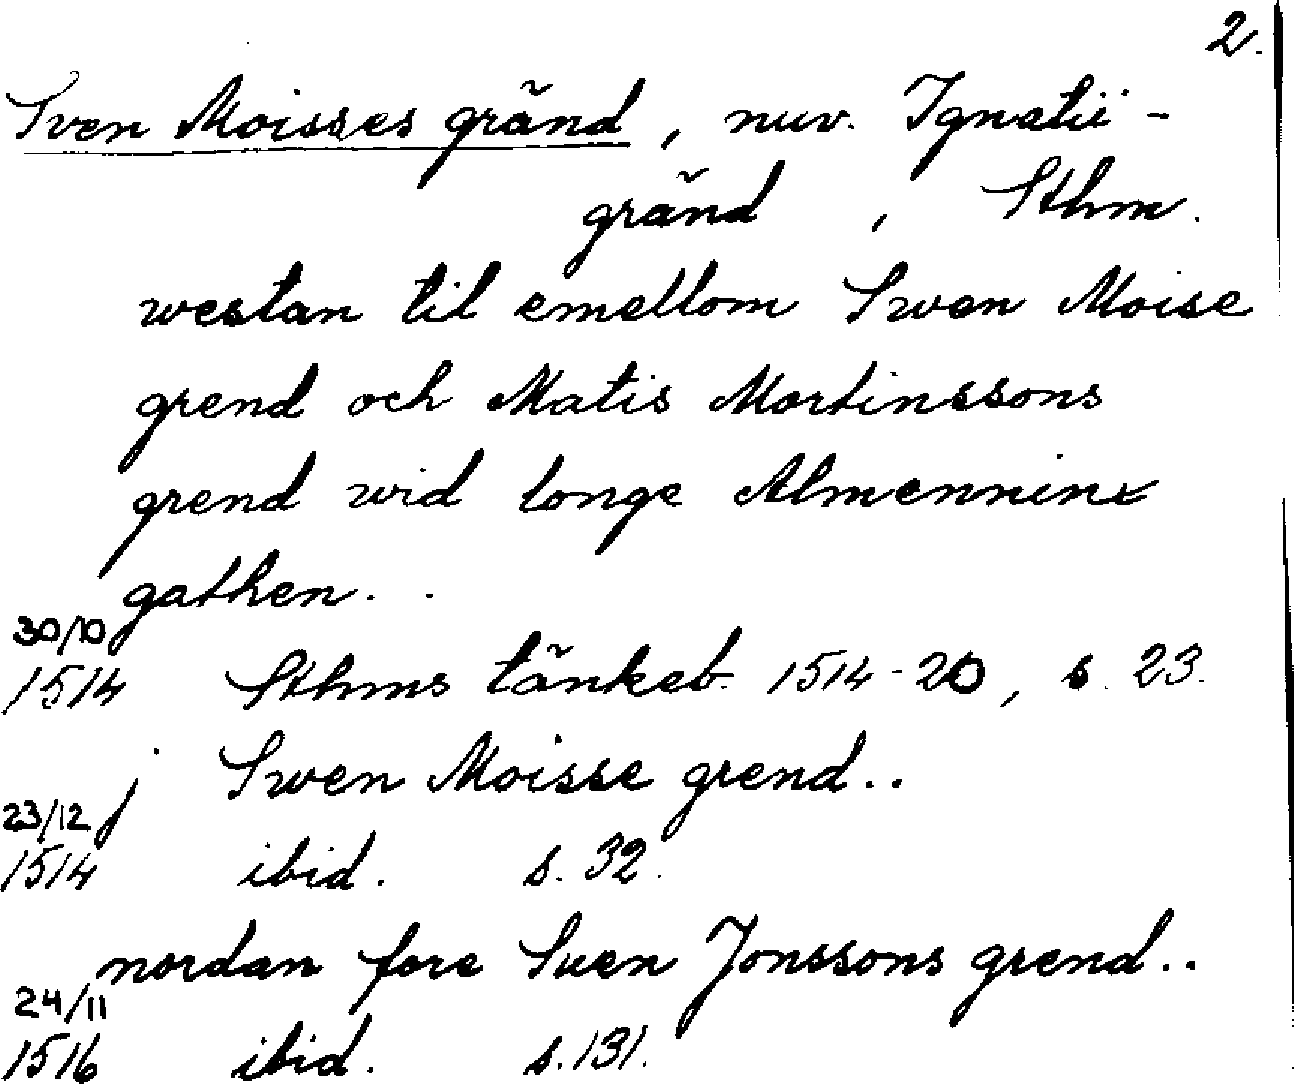 2.
Sven Moisses gränd, nuv. Ignatii-
gränd, Sthm.
westan til emellom Swen Moise
grend och Matis Mortinssons
grend wid longe Almenninx
gathen. .
30/10
1514 Sthms tänkeb. 1514-20, s. 23.
j Swen Moisse grend..
23/12
1514 ibid. s. 32.
nordan fore Suen Jonssons grend..
24/11
1516 ibid. s. 131.